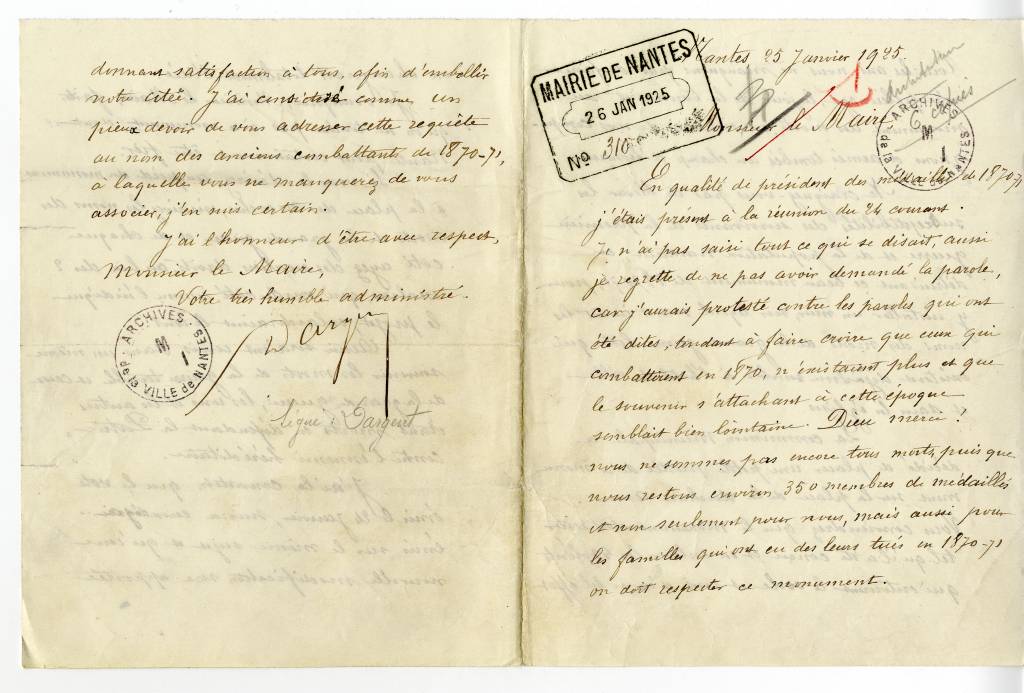 donnant satisfaction à tous, afin d'embellir
notre citée. J'ai considéré comme un
pieux devoir de vous adresser cette requête
au nom des anciens combattants de 1870-71,
à laquelle vous ne manquerez de vous
associer, j'en suis certain.
J'ai l'honneur d'être avec respect,
Monsieur le Maire,
Votre très humble administré.
Dargent
Signé : Dargent
ARCHIVES de la VILLE de NANTES
M
1
Nantes, 25 Janvier 1925.
MAIRIE DE NANTES
26 JAN 1925
No 310
1
Architecture
ARCHIVES de la VILLE de NANTES
M
1
Monsieur le Maire
En qualité de président des médaillés de 1870-71
j'étais présent à la réunion du 24 courant.
Je n'ai pas saisi tout ce qui se disait, aussi
je regrette de ne pas avoir demandé la parole,
car j'aurais protesté contre les paroles qui ont
été dites, tendant à faire croire que ceux qui
combattirent en 1870, n'existaient plus et que
le souvenir s'attachant à cette époque
semblait bien lointaine. Dieu merci !
nous ne sommes pas encore tous morts, puis que
nous restons environ 350 membres de médaillés
et non seulement pour nous, mais aussi pour
les familles qui ont eu des leurs tués en 1870-71
on doit respecter ce monument.